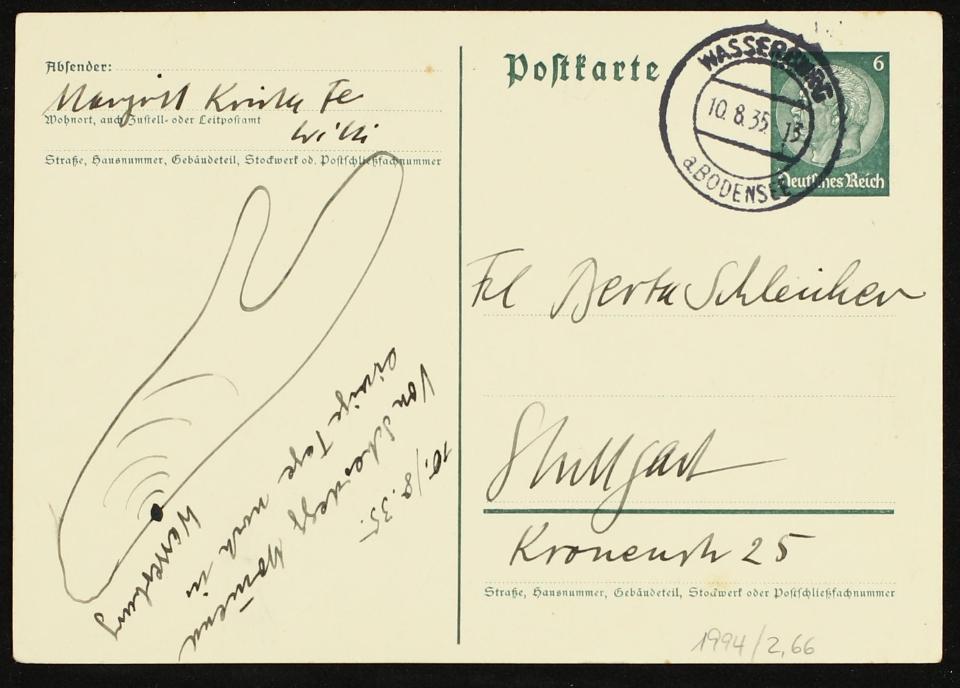 Absender:
Margrit
Wohnort, auch Zustell- oder Leitpostamt
Willi
Straße, Hausnummer, Gebäudeteil, Stockwerk od. Postschließfachnummer
10./8.35.
Von
einige Tage noch in
Wasserburg
Postkarte
WASSERBURG
10.8.35. 13
a. BODENSEE
6
Deutsches Reich
Frl Berta Schleicher
Stuttgart
Kronenstr 25
Straße, Hausnummer, Gebäudeteil, Stockwerk oder Postschließfachnummer
1994/2,66